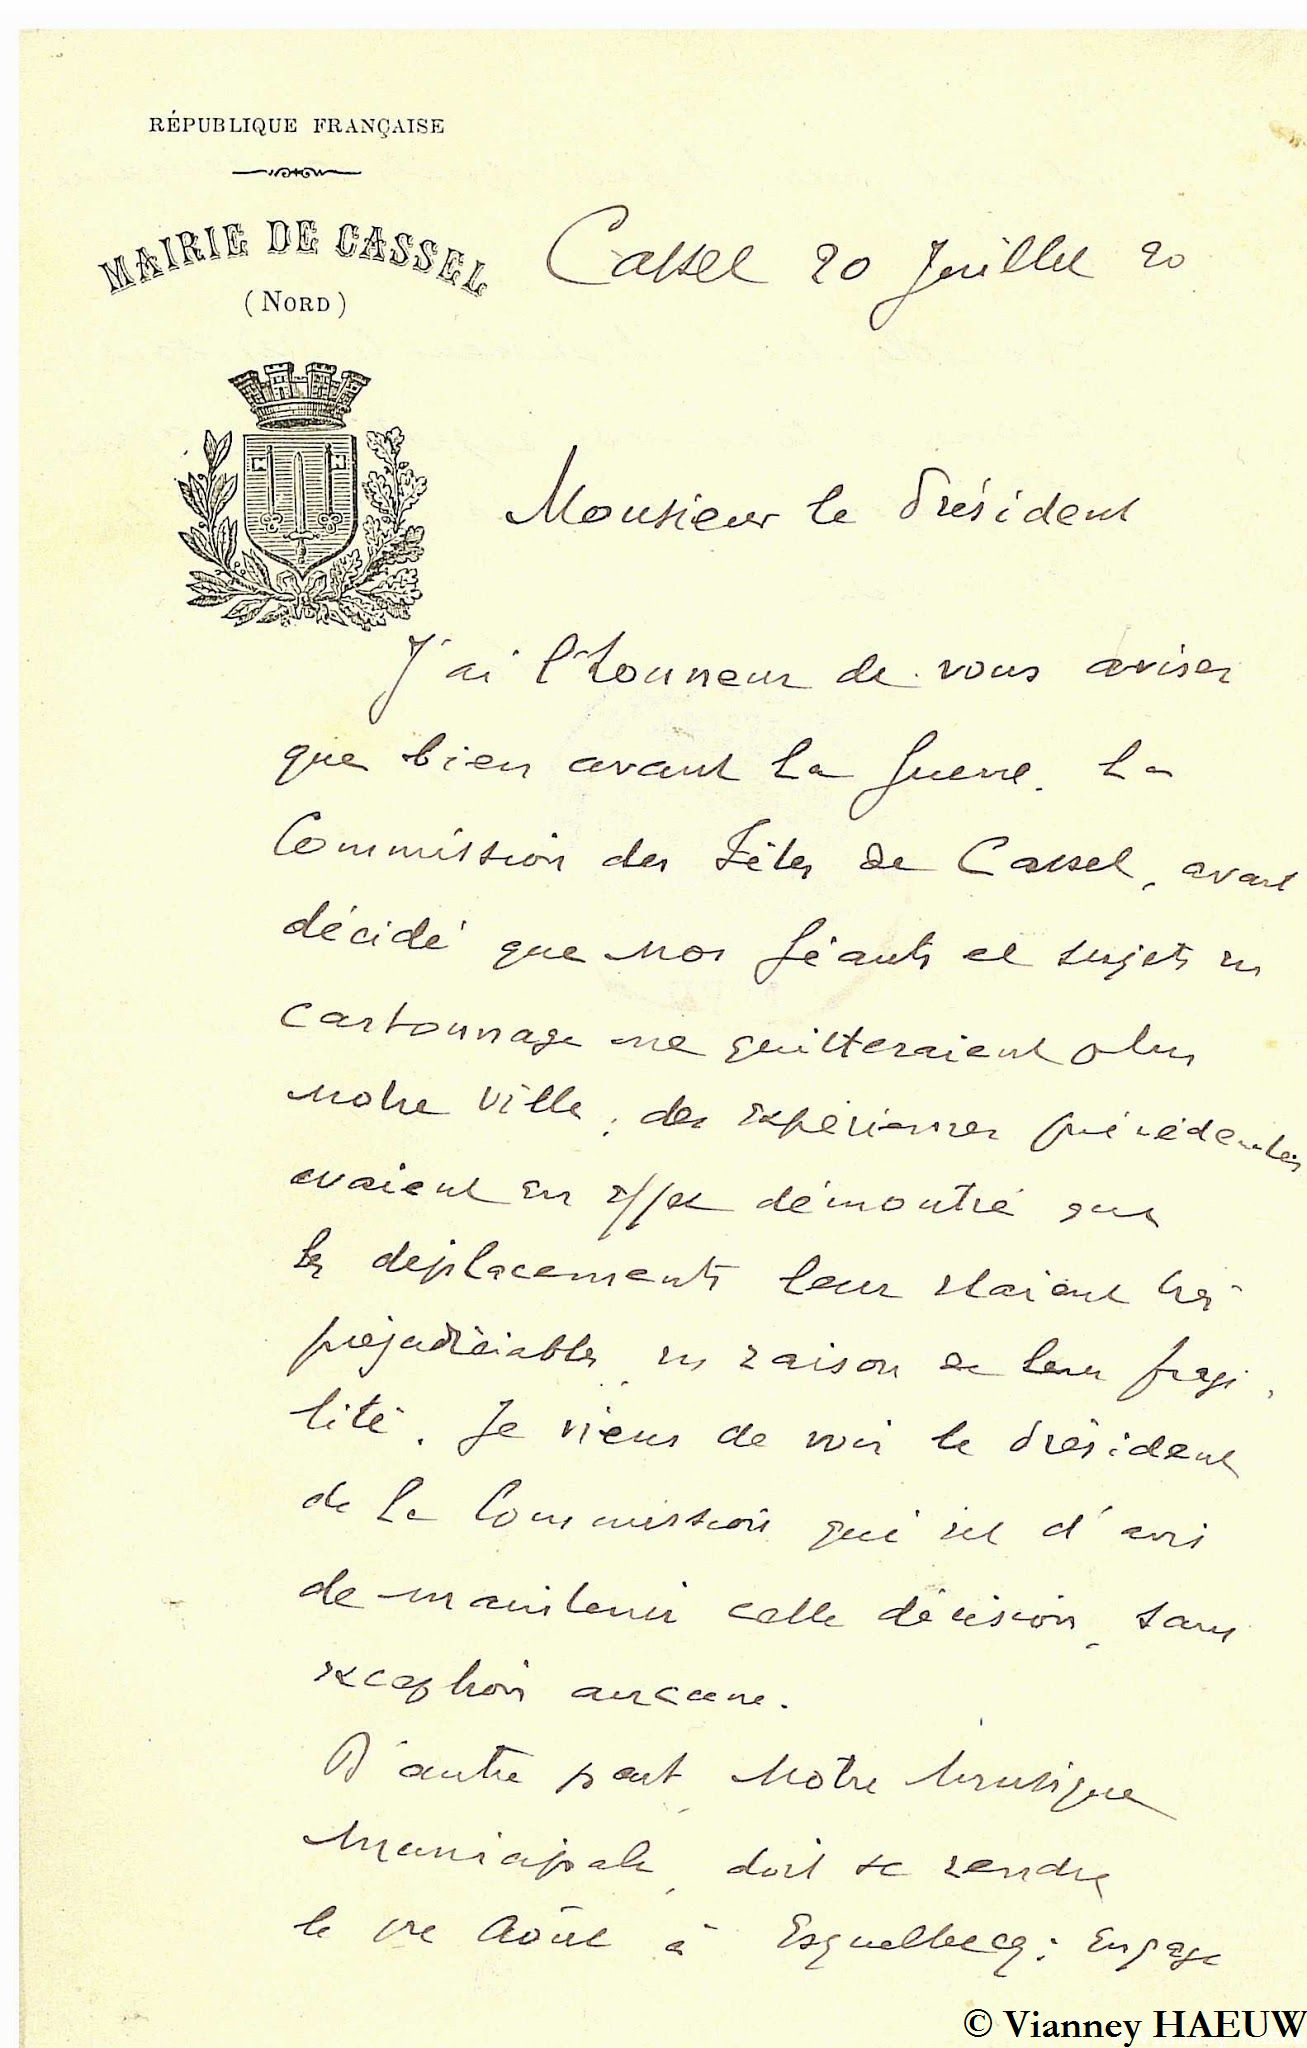 RÉPUBLIQUE FRANÇAISE
MAIRIE DE CASSEL
(NORD)
Cassel 20 Juillet 20
Monsieur le Président
J'ai l'honneur de vous aviser
que bien avant la guerre, la
Commission des Fêtes de Cassel, avait
décidé que nos géants et sujets en
cartonnage ne quitteraient plus
notre ville ; des expériences précédentes
avaient en effet démontré que
les déplacements leur étaient très
préjudiciables, en raison de leur fragi-
lité. Je viens de voir le Président
de la Commission qui est d'avis
de maintenir cette décision, sans
exception aucune.
D'autre part, Notre Musique
Municipale, doit se rendre
le 1er Août à Esquelbecq ; Engagé
© Vianney HAEUW